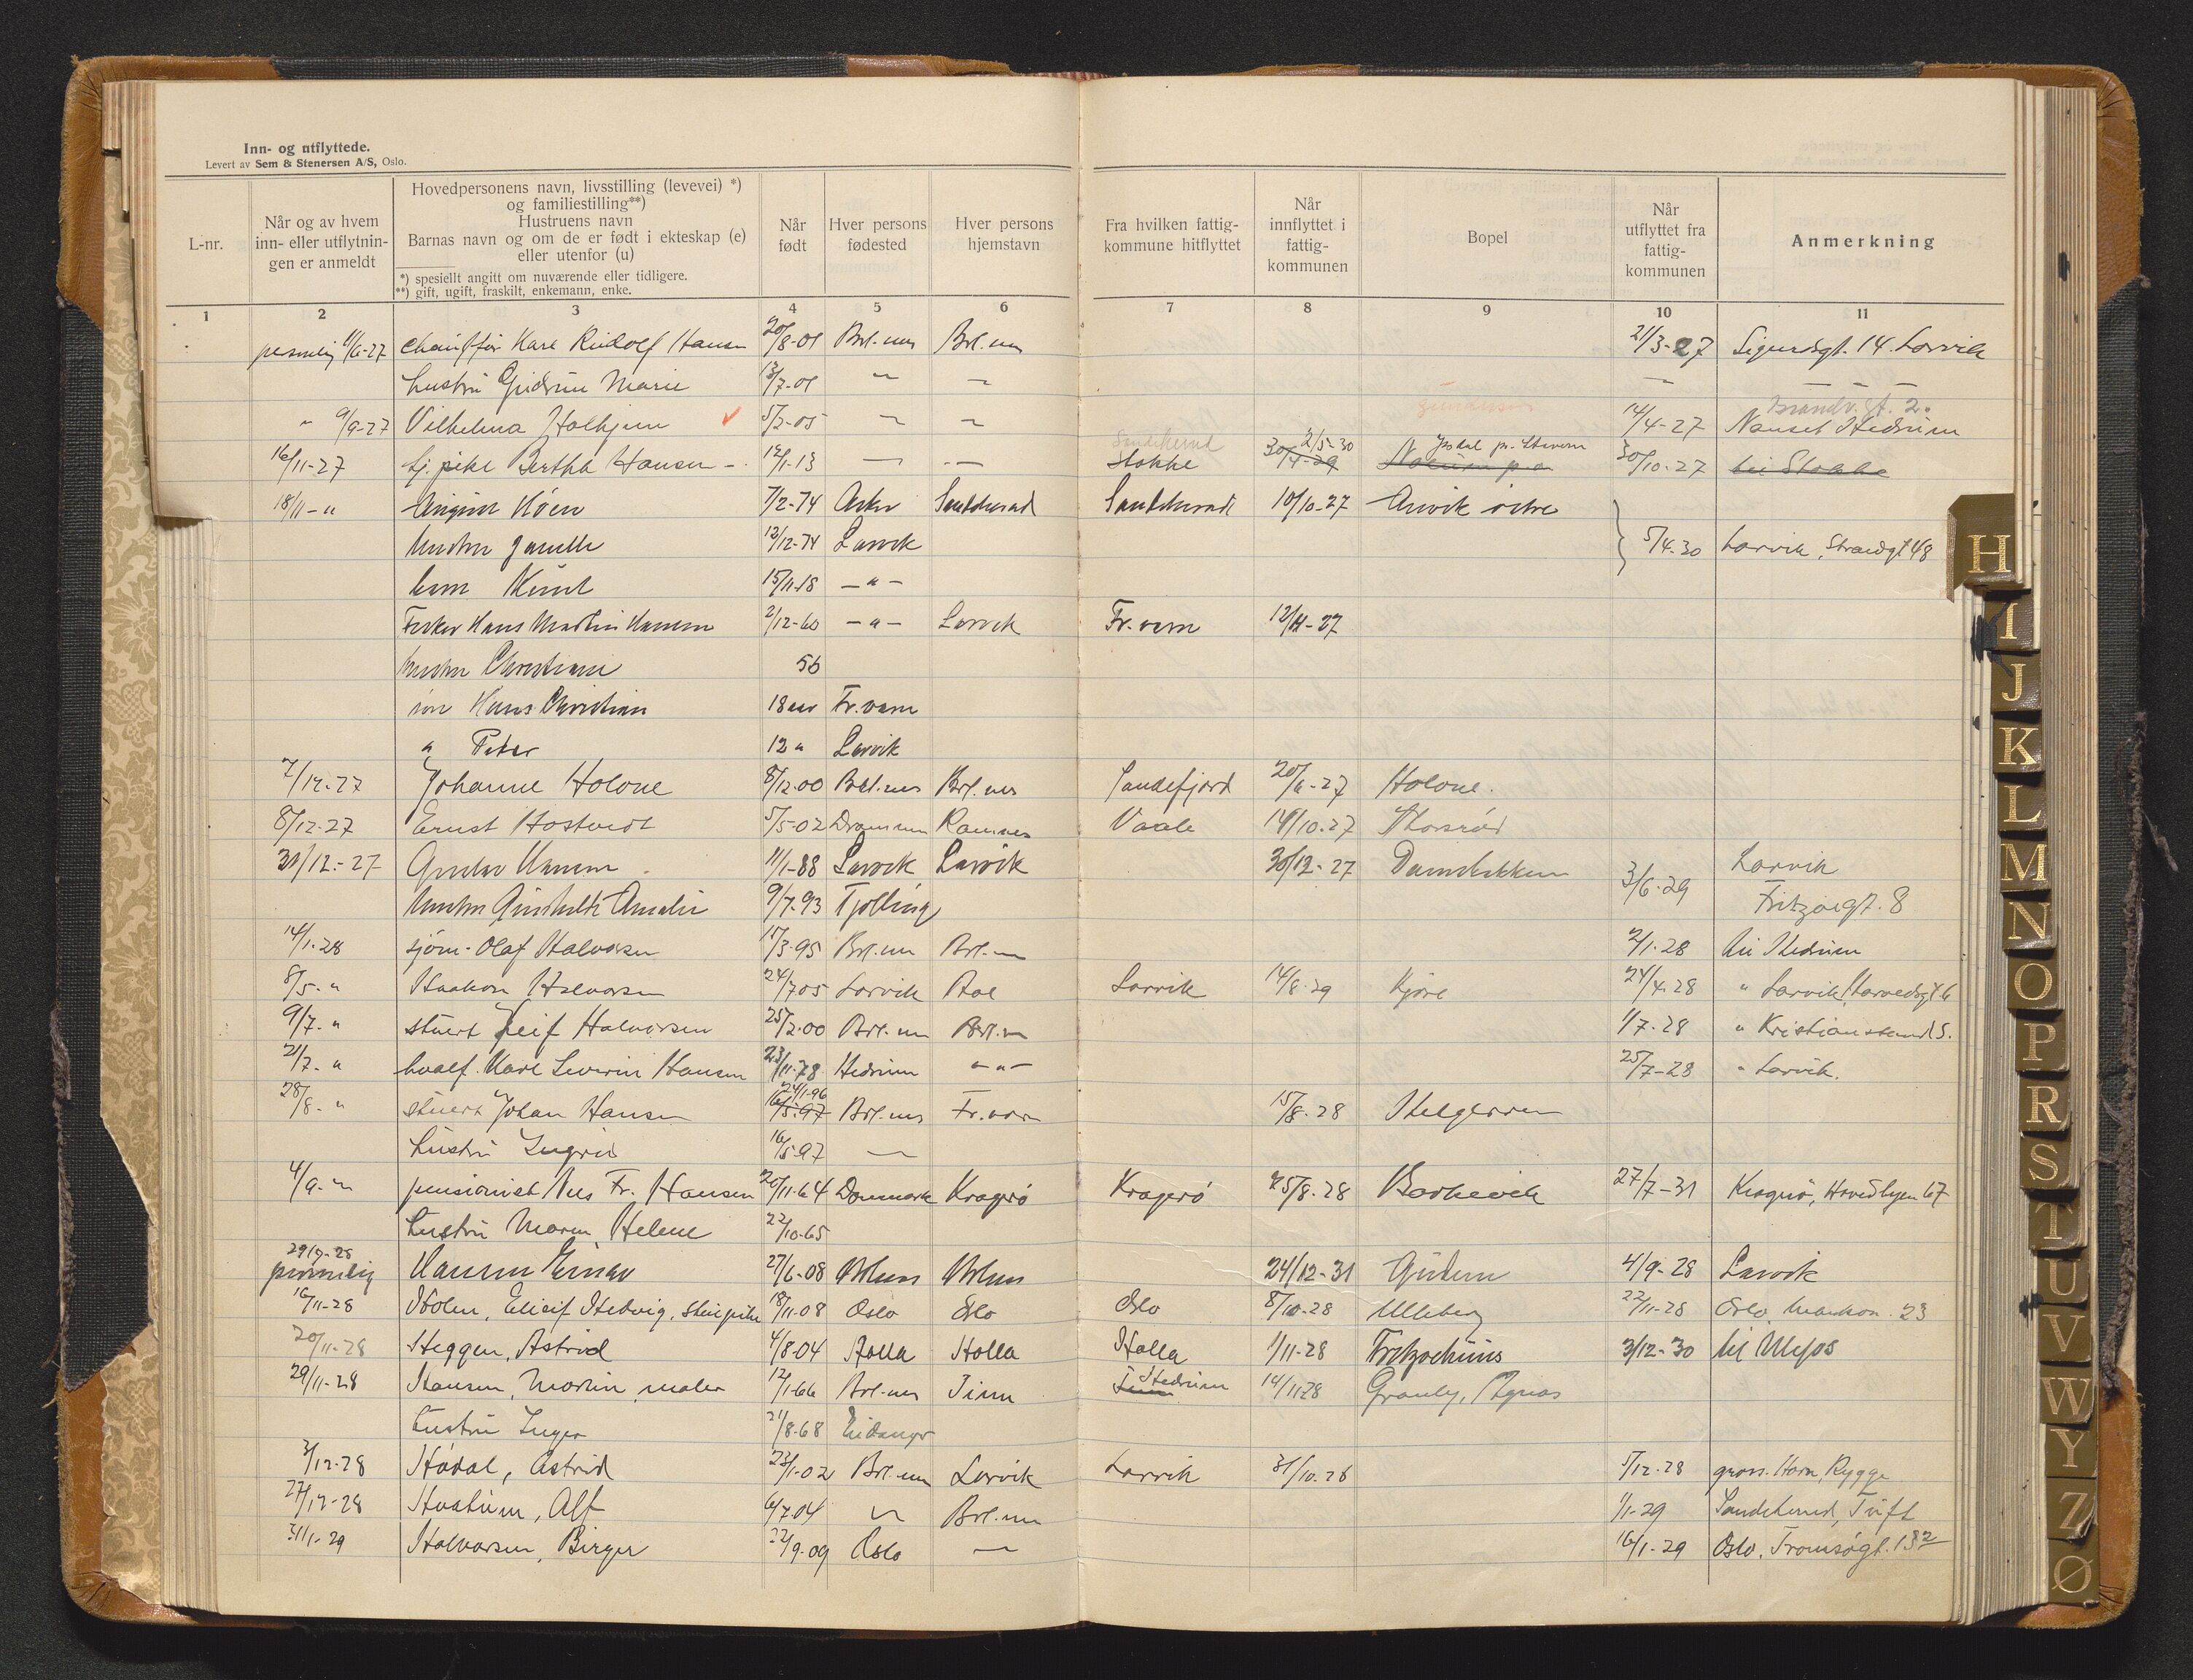 Inn- og utflyttede.
Levert av Sem & Stenersen A/S, Oslo.
L-nr.
Når og av hvem inn- eller utflytnin- gen er anmeldt
Hovedpersonens navn, livsstilling (levevei) *) og familiestilling**)
Hustruens navn
Barnas navn og om de er født i ekteskap (e) eller utenfor (u)
*) spesiellt angitt om nuværende eller tidligere.
**) gift, ugift, fraskilt, enkemann, enke.
Når født
Hver persons fødested
Hver persons hjemstavn
Fra hvilken fattig- kommune hitflyttet
Når innflyttet i fattig- kommunen
Bopel
Når utflyttet fra fattig- kommunen
Anmerkning
1 2 3 4 5 6 7 8 9 10 11
Karl Rudolf Hansen 20/8-01 Brl.nes Brl.nes 21/3-27 Sigurdsgt. 14. Larvik
hustru Gudrun Marie 13/7-01 — — — — — —
" 9/9-27 Vilhelmina 5/2-05 — — 14/4-27 Nanset Hedrum
16/11-27 tj.pike Bertha Hansen 12/1-13 — — Sandeherad Stokke 2/5-30 30/10-27 til Stokke
18/11-" 7/2-74 Asker Sandeherad Sandeherad 10/10-27 Anvik østre
hustru 12/12-74 Larvik 5/4.30 Larvik, Strandgt 48
Knut 15/11.18 — " —
Fisker Hans Martin Hansen 2/12-60 — " — Larvik Fr.vern 27
hustru Christiane 56
søn Hans Christian 18 aar Fr.vern
" Peter 12 " Larvik
7/12-27 Johanne Holone 8/12.00 Brl.nes Brl.nes Sandefjord 20/6-27 Holone.
8/12-27 Ernst Hostvedt 5/5-02 Drammen Ramnes Vaale 14/10.27
31/12.-27 Hansen 11/1-88 Larvik Larvik 30/12-27 3/6-29 Larvik
hustru Amalie 9/7.93 Tjølling Fritzøegt. 8
14/1-28 sjøm. Olaf Halvorsen 17/3-95 Brl.nes Brl.nes 2/1.28 til Hedrum
8/5-" Haakon Halvorsen 24/7 05 Larvik Larvik 14/8-29 Kjøse 24/4.28 " Larvik
9/7-" stuert Leif Halvorsen 25/2.00 Brl.nes Brl.nes 1/7-28 " Kristiansand S.
21/7-" hvalf. Karl Severin Hansen 23/11-78 Hedrum — " — 25/7-28 " Larvik.
28/8-" stuert Johan Hansen 24/1-96 16/5-97 Brl.nes Fr.vern 15/8.28 Helgeroen
hustru Ingrid 16/5-97 —
4/9-" pensionist Nils Fr. Hansen 20/11-64 Danmark Kragerø Kragerø 25/8.28 Barkevik 27/7-31 Kragerø,
hustru Maren Helene 22/10-65
29/9-28
personlig Hansen Einar 27/6-08 Brlnes Brlnes 24/12-31 4/9-28 Larvik
16/11-28 Holen, Elisif Hedvig, 18/11-08 Oslo Oslo Oslo 8/10-28 Ulleberg 22/11-28 Oslo 23
20/11-28 Heggen, Astrid 4/8-04 Holla Holla Holla 1/11-28 Fritzøehus 3/12-30 til Ulefos
29/11-28 Hansen, Martin, maler 12/1-66 Brl-nes Tinn Tinn Hedrum 14/11 28 Granly, Agnes
hustru Inger 21/8-68 Eidanger
3/12-28 Hådal, Astrid 23/1-02 Brl.nes Larvik Larvik 31/10.26 5/12-28 Rygge
27/12-28 Hvatum, Alf 6/7 04 — Brl.nes 1/1-29 Sandeherad, Tuft
31/1-29 Halvorsen, Birger 22/9-09 Oslo — 16/1-29 Oslo, Tromsøgt. 13
H
I
J
K
L
M
N
O
P
R
S
T
U
V
W
Y
Z
Ø